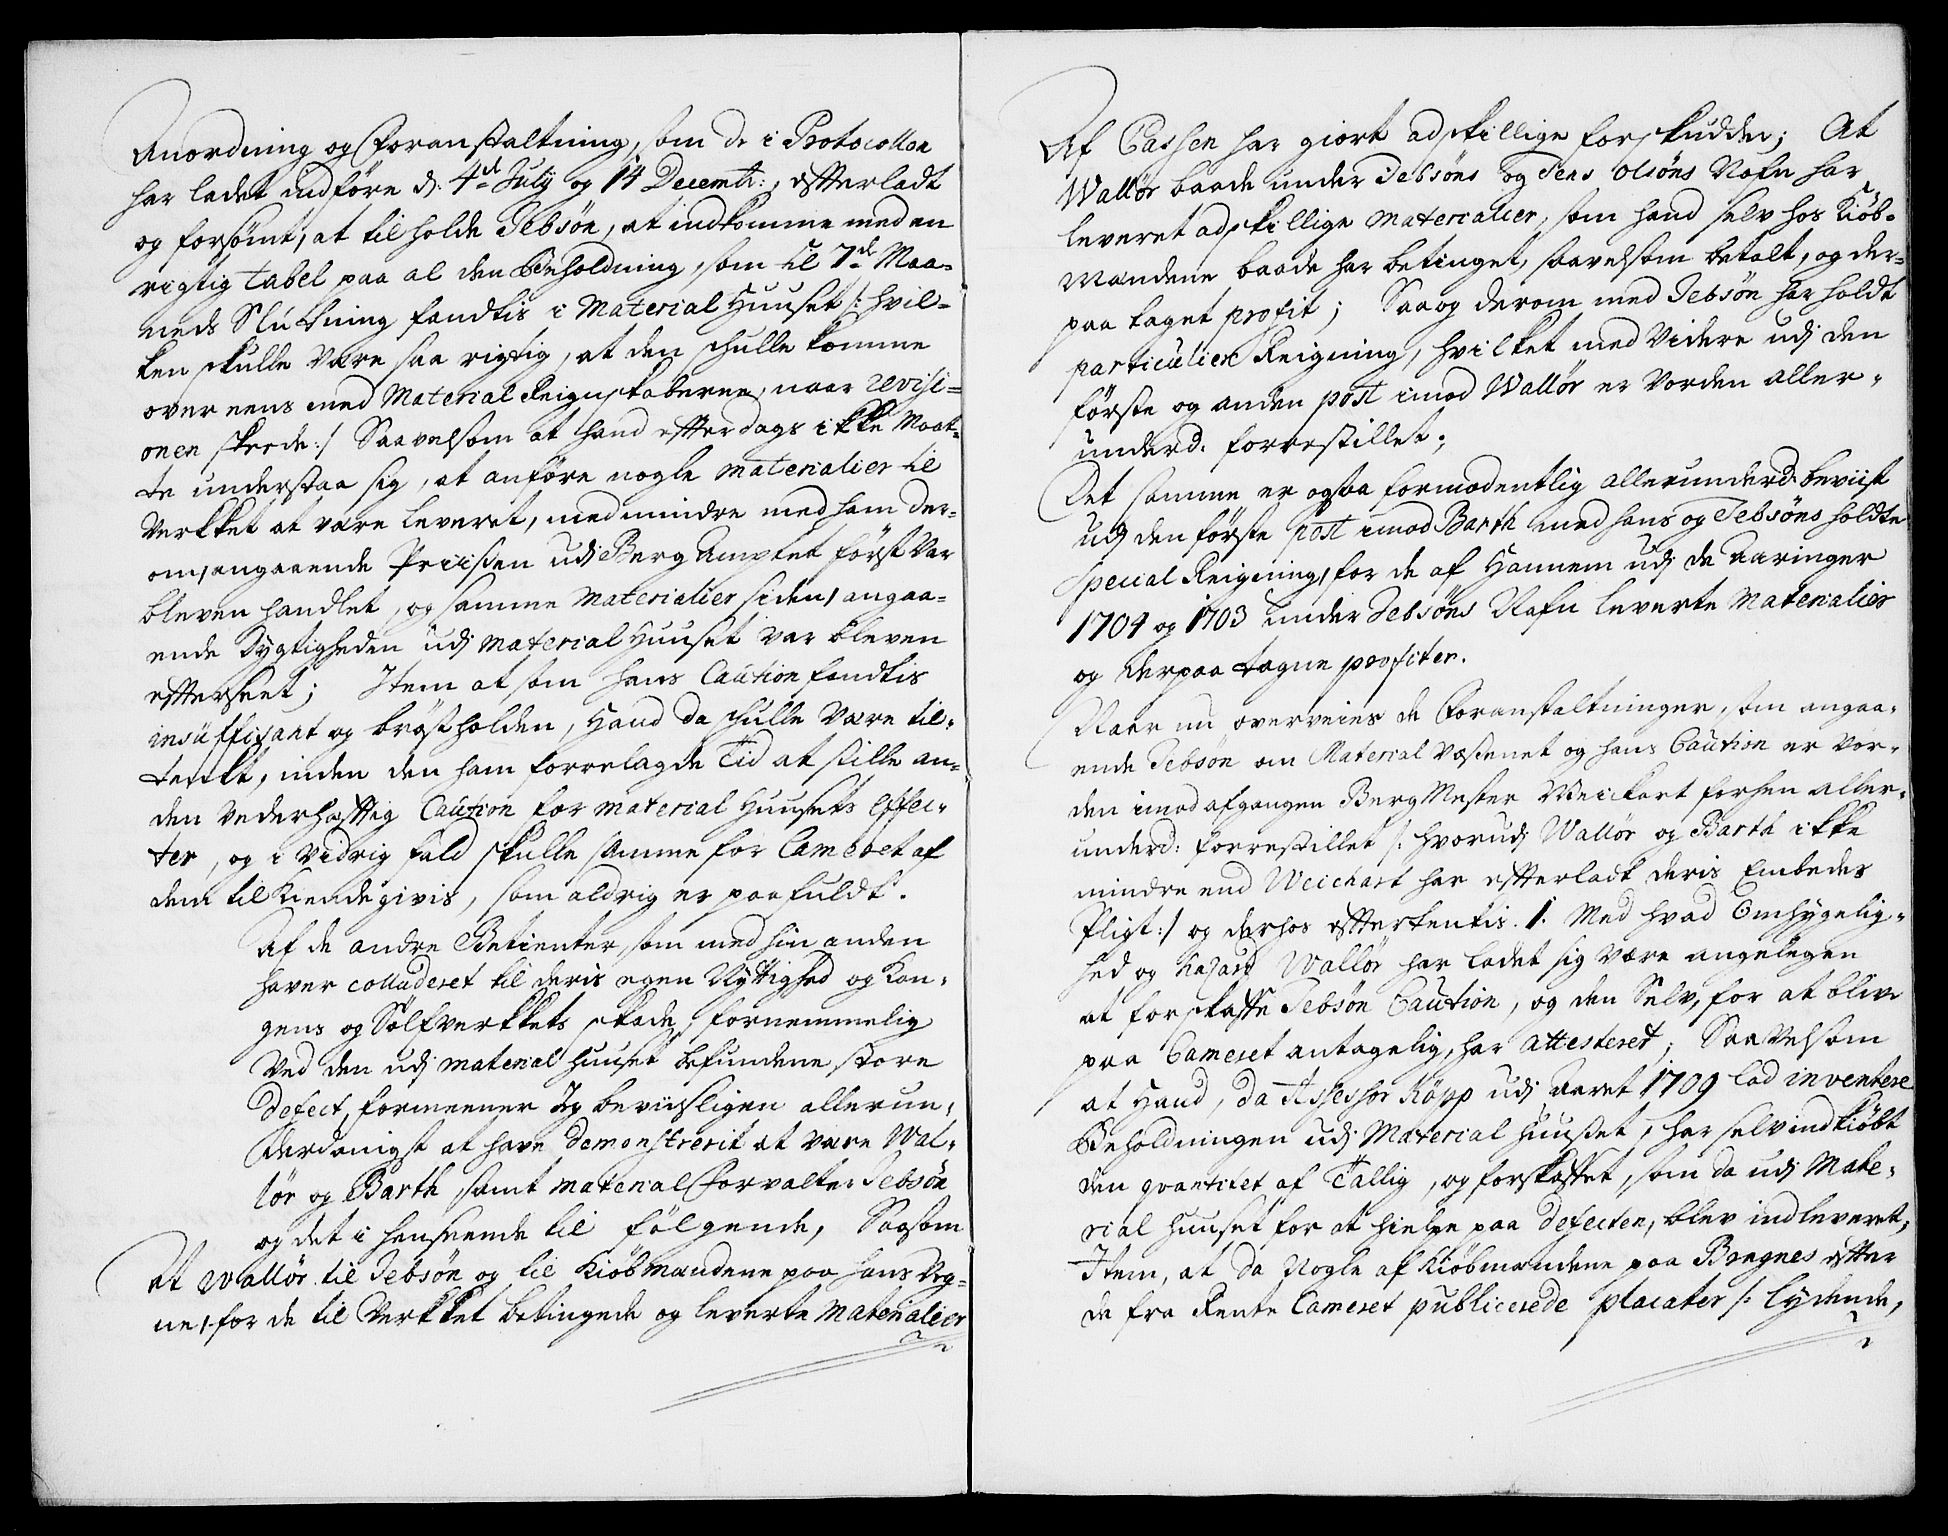 Anordning og Foranstaltning, som de i Protocollen
har ladet indføre d: 4de July og 14 Decembr:, efterladt
og forsømt, at tilholde Jebsøn, at indkomme med en
rigtig tabel paa al den Beholdning, som til 7de Maa-
neds Slutning fandtis i Material Huuset /: hvil-
ken skulle være saa rigtig, at den skulle komme
over eens med Material Reignskaberne, naar revisi-
onen skeede :/ Saavelsom at hand efterdags ikke Maat-
te understaa sig, at anføre nogle materialier til
Verkket at være leveret, med mindre med ham der-
om, angaaende Priisen udj Berg Amptet først var
bleven handlet, og samme Materialier siden, angaa-
ende Dygtigheden udj Material Huuset var bleven
efterseet; Item at som hans Caution fandtis
insuffisant og brøstholden, Hand da skulle være til-
tenkt, inden den ham forrelagde Tid at stille an-
den vederhæftig Caution for material Huusets Effec-
ter, og i vidrig fald skulle samme for Cameret af
dem tilkiendegivis, som aldrig er paafuldt.
Af de andre Betienter, som med hin anden
haver colluderet til deris egen Nyttighed og Kon-
gens og Sølfverkkets skade, fornemmelig
ved den udj material Huuset befundene store
Defect, formeener Jeg beviisligen allerun-
derdanigst at have demonstrerit at være Wal-
lør og Barth, samt material Forvalter Jebsøn
og det i henseende til følgende, Saasom
At Wallør til Jebsøn og til Kiøbmændene paa hans Veg-
ne, for de til Verkket betingede og leverte Materialier
Af Cassen har giort adskillige forskudder; At
Wallør baade under Jebsøns og Jens Olsøns Nafn har
leveret adskillige Materialier, som hand selv hos Kiøb-
mændene baade har betinget, saavelsom betalt, og der-
paa taget profit; Saa og derom med Jebsøn har holdt
particulier Reigning, hvilket med Videre udj den
første og anden post imod Wallør er vorden aller-
underd: forrestillet;
Det samme er ogsaa formodentlig allerunderd: beviist
udj den første post imod Barth med hans og Jebsøns holdte
Special Reigning, for de af Hannem udj de Aaringer
1704 og 1703 under Jebsøns Nafn leverte Materialier
og derpaa tagne profiter.
Naar nu overveies de Foranstaltninger, som angaa-
ende Jebsøn om Material Væsenet og hans Caution er Vor-
den imod afgangen Berg Mester Weichart forhen aller-
underd: forrestillet /: hvorudj Wallør og Barth ikke
mindre end Weichart har efterladt deris Embedes
Pligt :/ og derhos eftertenkis. 1. Med hvad Omhygelig-
hed og hasart Wallør har ladet sig være angelegen
at forskaffe Jebsøn Caution, og den Selv, for at blive
paa Cameret antagelig, har attesteret; Saavelsom
at Hand, da Assessor Köpp udj Aaret 1709 lod inventere
Beholdningen udj Material Huuset, har selv indkiøbt
den qvantitet af Tallig, og forskaffet, som da udj Mate-
rial Huuset for at hielpe paa Defecten, blev indleveret,
Item, at da Nogle af Kiøbmændene paa Bragnes efter
de fra Rente Cameret publicerede placater /: lydende,